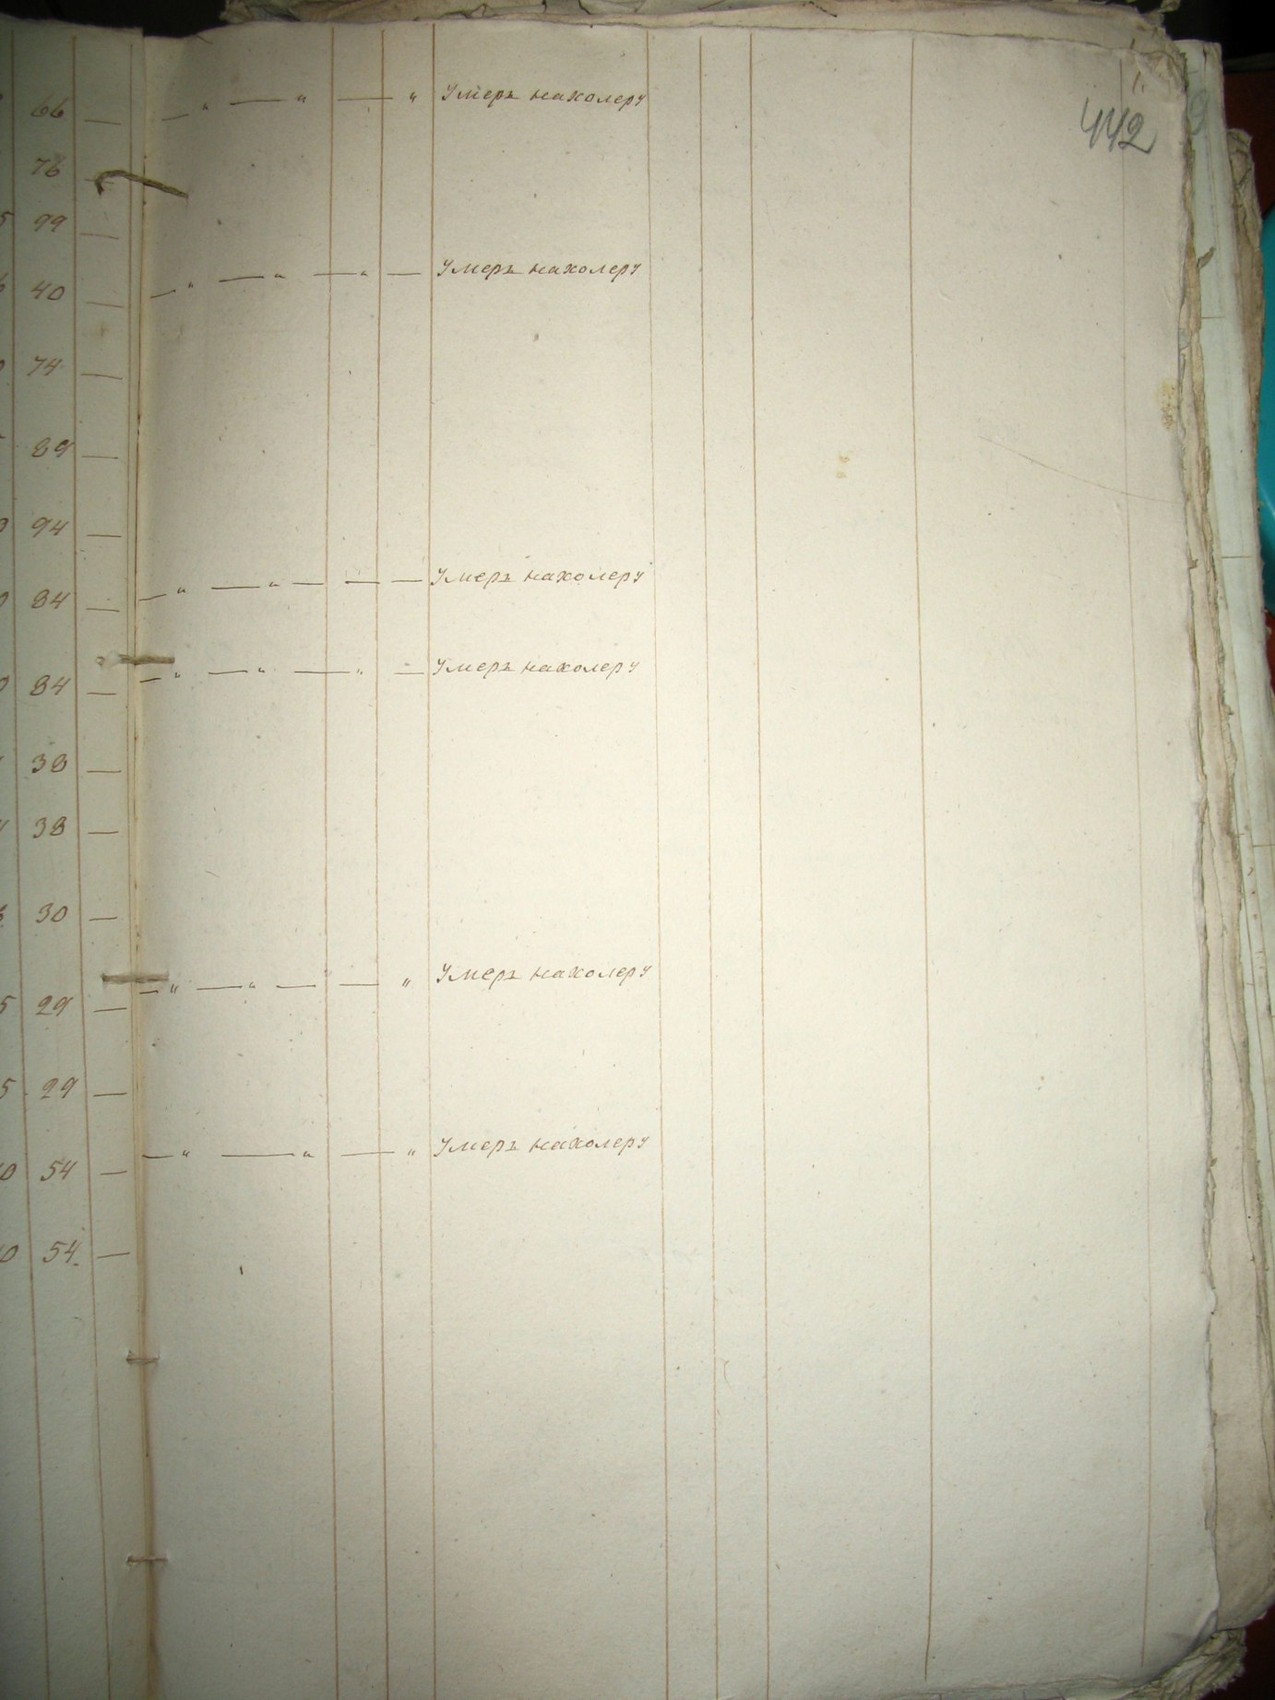 442
66 —
— " — " — " Умеръ нахолеру
76 —
99 —
40 —
— " — " — " — Умеръ нахолеру
74 —
89 —
94 —
84 —
— " — " — — — Умеръ нахолеру
84 —
— " — " — " — Умеръ нахолеру
38 —
38 —
30 —
29 —
— " — " — — " Умеръ нахолеру
29 —
54 —
— " — " — " Умеръ нахолеру
54. —